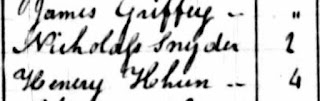 James Griffey -- "
Nicholass Snyder 2
Henery Hhun -- 4